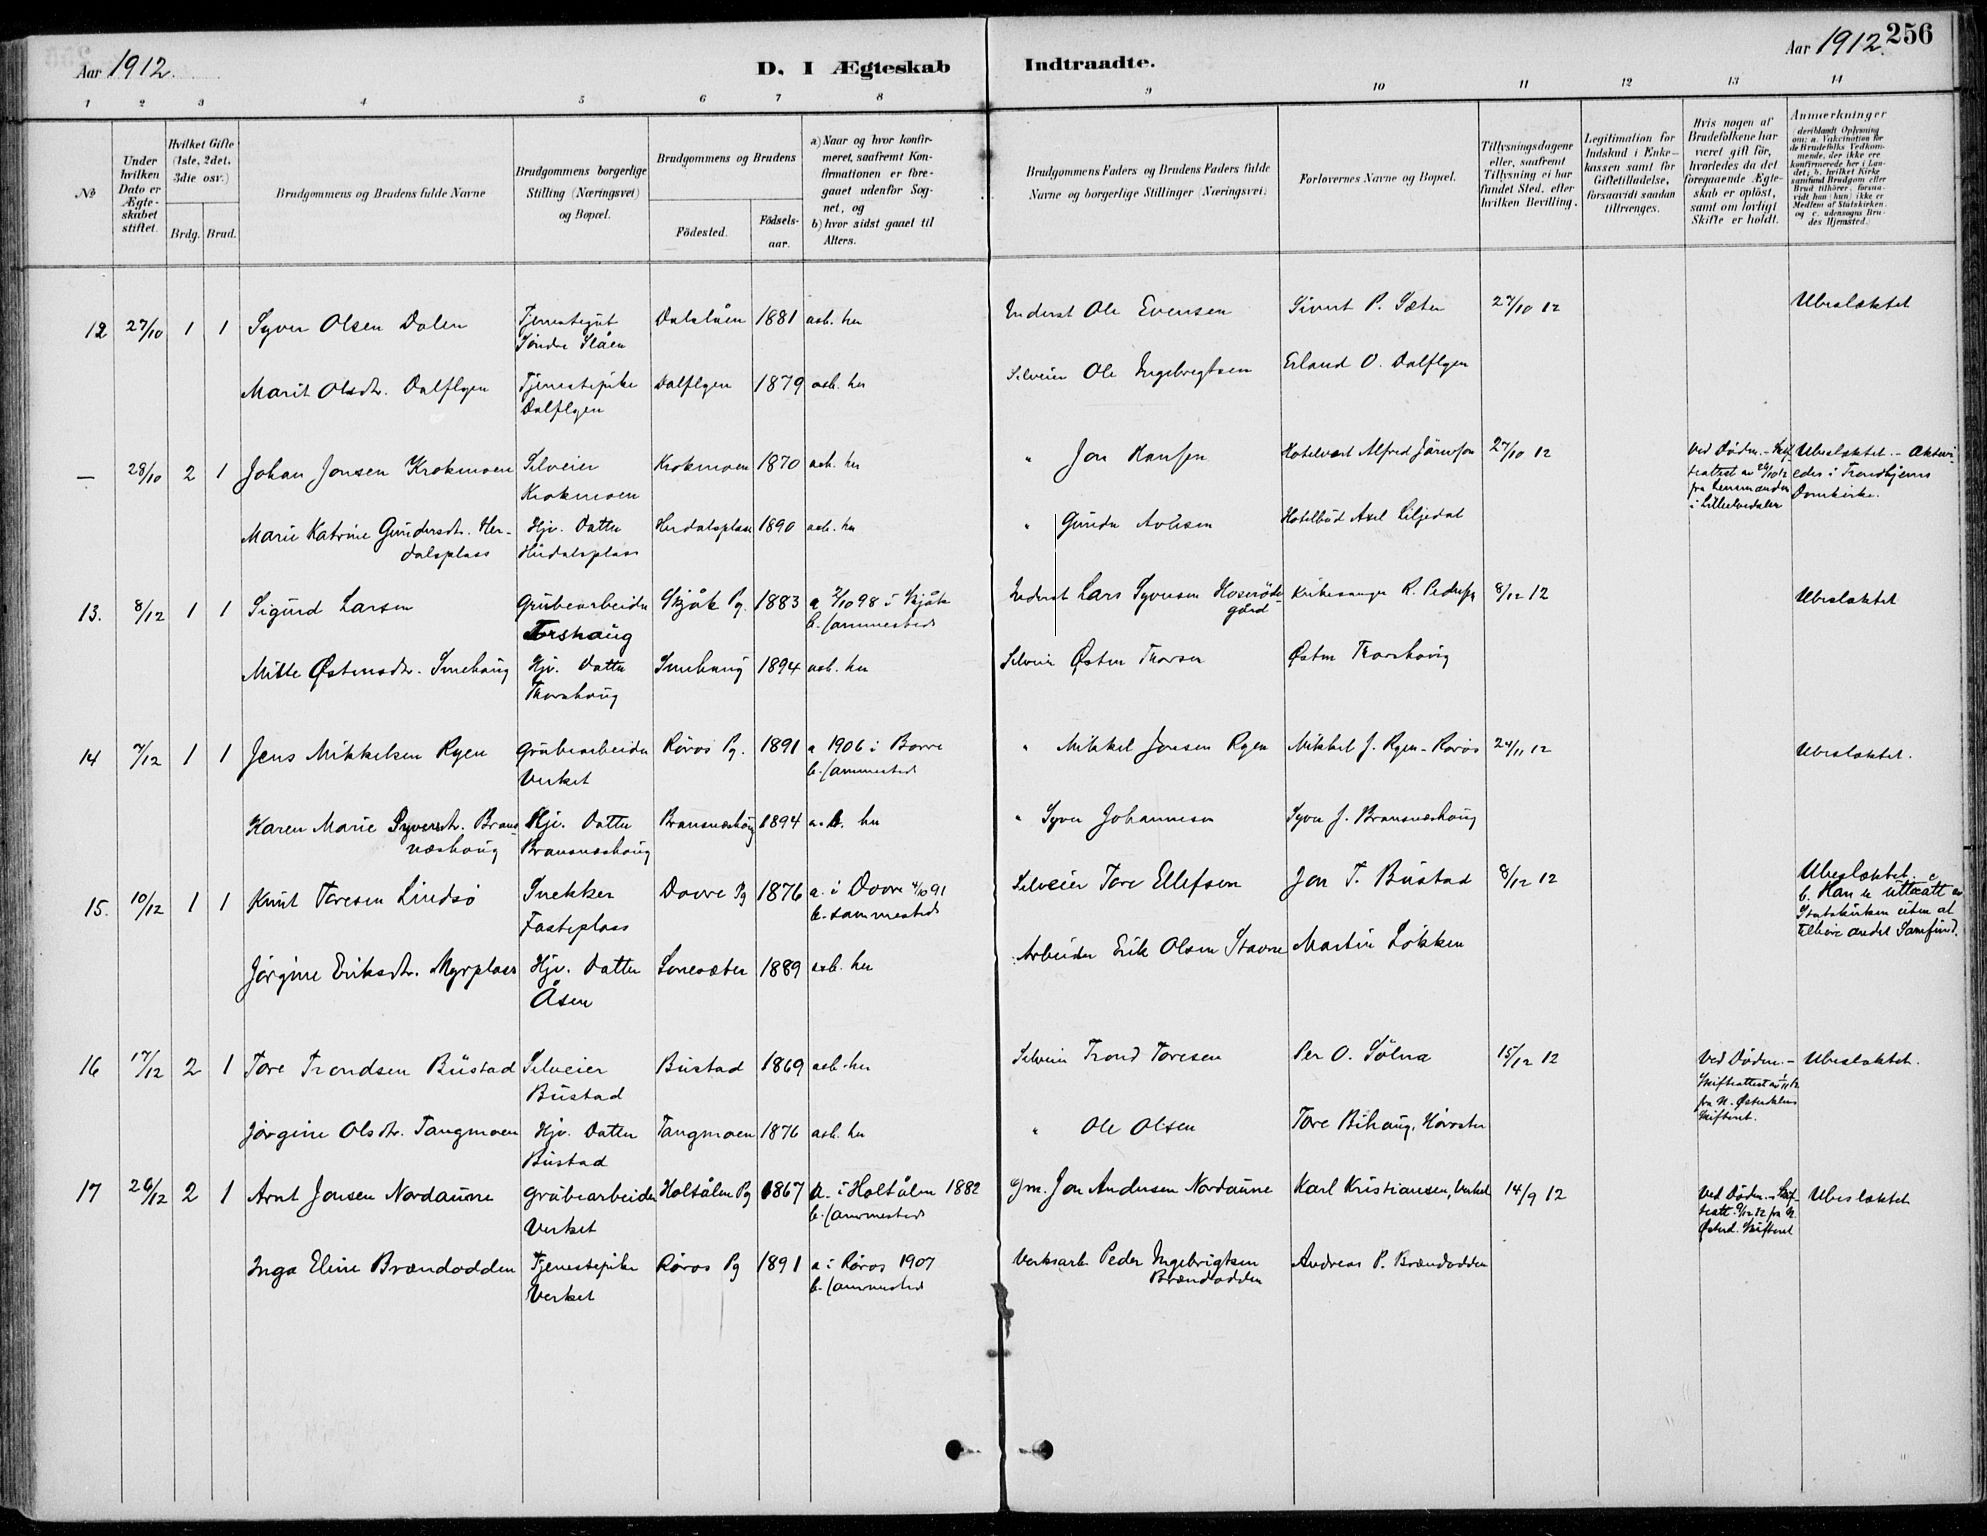 Aar 1912.
D. I Ægteskab
Indtraadte.
Aar 1912. 256
1 2 3 4 5 6 7 8 9 10 11 12 13 14
No
Under hvilken Dato er Ægteskabet stiftet.
Hvilket Gifte (1ste, 2det, 3die osv.)
Brdg. Brud.
Brudgommens og Brudens fulde Navne
Brudgommens borgerlige Stilling (Næringsvei) og Bopæl.
Brudgommens og Brudens
Födested.
Födsels-aar.
a) Naar og hvor konfirmeret, saafremt Konfirmationen er foregaaet udenfor Sognet, og
b) hvor sidst gaaet til Alters.
Brudgommens Faders og Brudens Faders fulde Navne og borgerlige Stillinger (Næringsvei)
Forlovernes Navne og Bopæl.
Tillysningsdagene eller, saafremt Tillysning ei har fundet Sted, efter hvilken Bevilling.
Legitimation for Indskud i Enkekassen samt for Giftetilladelse, forsaavidt saadan tiltrænges.
Hvis nogen af Brudefolkene har været gift för, hvorledes da det foregaaende Ægteskab er oplöst, samt om lovligt Skifte er holdt.
Anmærkninger (deriblandt Oplysning om: a. Vakcination for de Brudefolks Vedkommende, der ikke ere konfirmerede her i Landet; b. hvilket Kirkesamfund Brudgom eller Brud tilhörer, forsaavidt han (hun) ikke er Medlem af Statskirken, og c. udensogns Brudes Hjemsted.)
12 27/10 1 1 Syver Olsen Dalen Tjenestegut Söndre Slåen Dalslåen 1881 aob. her Inderst Ole Evensen Sivert P. Sæter 27/10 12 Ubeslæktet
Marit Olsdtr. Dalflyen Tjenestepike Dalflyen Dalflyen 1879 aob. her Selveier Ole Ingebrigtsen Erland O. Dalflyen
— 28/10 2 1 Johan Jonsen Krokmoen Selveier Krokmoen Krokmoen 1870 aob. her " Jon Hansen Hotelvært Alfred Jörensen 27/10 12 Ved Döden. – Skifteattest av 22/10 12 fra Lensmanden i Lilleelvedalen Ubeslæktet. – Æktevies i Trondhjems Domkirke.
Marie Katrine Gundersdtr. Herdalsplass Hjv. Datter Herdalsplass Herdalsplass 1890 aob. her " Gunder Avlesen Hotelbud Axel Liljedal
13. 8/12 1 1 Sigurd Larsen Grubearbeider Torshaug Skjåk Pg. 1883 a 2/10 98 i Skjåk b. sammesteds Inderst Lars Syversen Hoseröde- gård Kirkesanger R. Pedersen 8/12 12 Ubeslæktet
Mitte Östensdtr. Snuehaug Hjv. Datter Thorshaug Snuehaug 1894 aob. her Selveier Östen Thorsen Östen Thorshaug
14 7/12 1 1 Jens Mikkelsen Ryen Grubearbeider Verket Röros Pg. 1891 a 1906 i Borre b. sammesteds " Mikkel Jonsen Ryen Mikkel J. Ryen – Rörös 24/11 12 Ubeslæktet.
Karen Marie Syversdtr. Bransnæshaug Hjv. Datter Bransnæshaug Bransnæshaug 1894 a. b. her " Syver Johannesen Syver J. Bransnæshaug
15. 10/12 1 1 Knut Toresen Lindsö Snekker Fasteplass Dovre Pg 1876 a. i Dovre 4/10 91 b. sammesteds Selveier Tore Ellefsen Jon T. Bustad 8/12 12 Ubeslæktet. b. Han er uttraatt av Statskirken uten at tilhöre andet Samfund.
Jörgine Eriksdtr. Myrplass Hjv. Datter Åsen Lonesæter 1889 aob. her Arbeider Erik Olsen Stavne Martin Lökken
16 17/12 2 1 Tore Trondsen Bustad Selveier Bustad Bustad 1869 aob. her Selveier Trond Toresen Per O. Sölna 15/12 12 Ved Döden. – Skifteattest av fra N. Österdalens Skifteret. Ubeslæktet.
Jörgine Olsdtr. Tangmoen Hjv. Datter Bustad Tangmoen 1876 aob. her " Ole Olsen Tore Bihaug,
17 26/12 2 1 Arnt Jonsen Nordaune Grubearbeider Verket Holtålen Pg 1867 a. i Holtålen 1882 b. sammesteds Gm. Jon Andersen Nordaune Karl Kristiansen, Verket 14/9 12 Ved Döden. – Skifteatt. 9/12 12 fra N. Österd. Skifteret Ubeslæktet
Inga Eline Brændodden Tjenestepike Verket Röros Pg 1891 a i Röros 1907 b. sammesteds Verksarb. Peder Ingebrigtsen Brændodden Andreas P. Brændodden